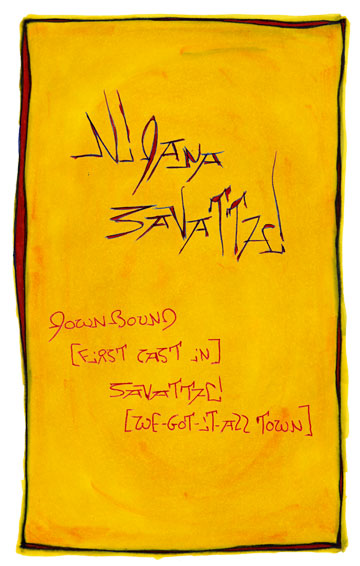 NIDANA
SAVATTHI
DOWNBOUND
[FIRST CAST IN]
SAVATTHI
[WE-GOT-IT-ALL TOWN]